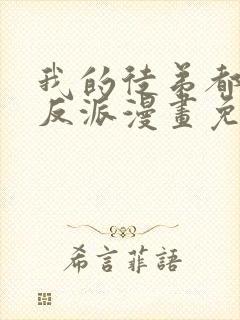 我的徒弟都
反派漫畫免
希言菲語